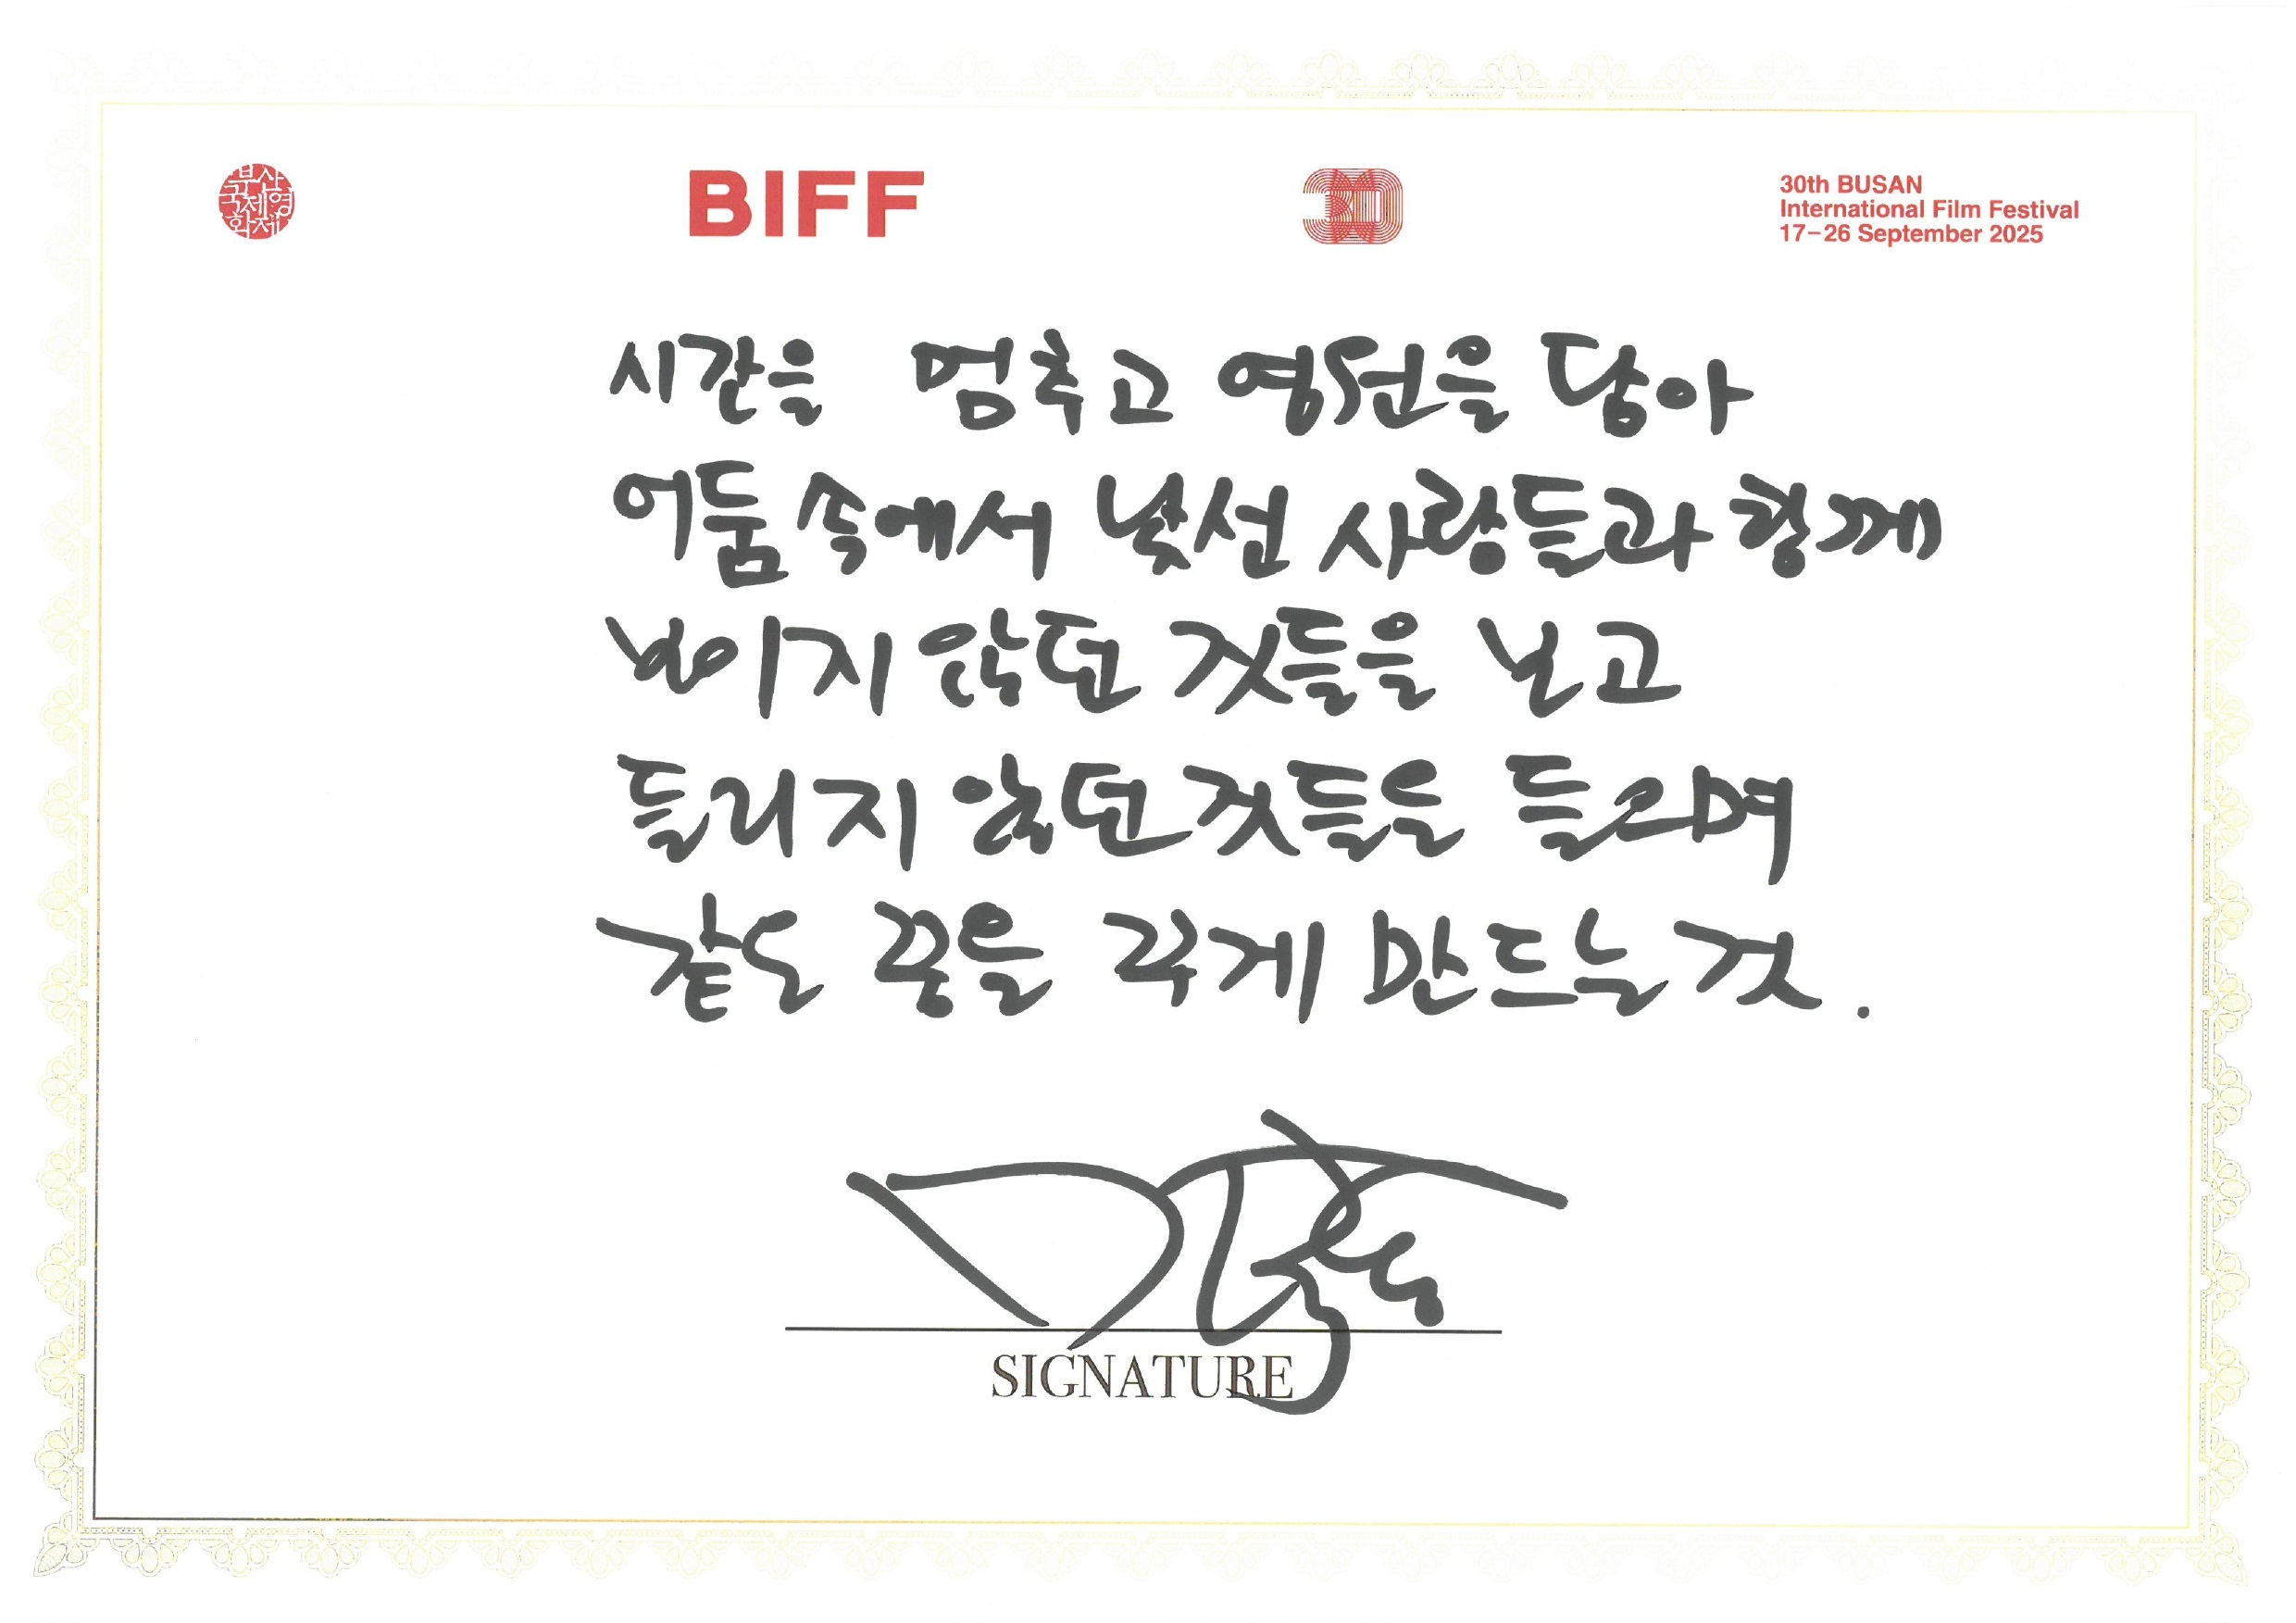 부산
국제영
화제
BIFF
30
30th BUSAN
International Film Festival
17–26 September 2025
시간을 멈추고 영원을 담아
어둠 속에서 낯선 사람들과 함께
보이지 않던 것들을 보고
들리지 않던 것들을 들으며
같은 꿈을 꾸게 만드는 것.
SIGNATURE